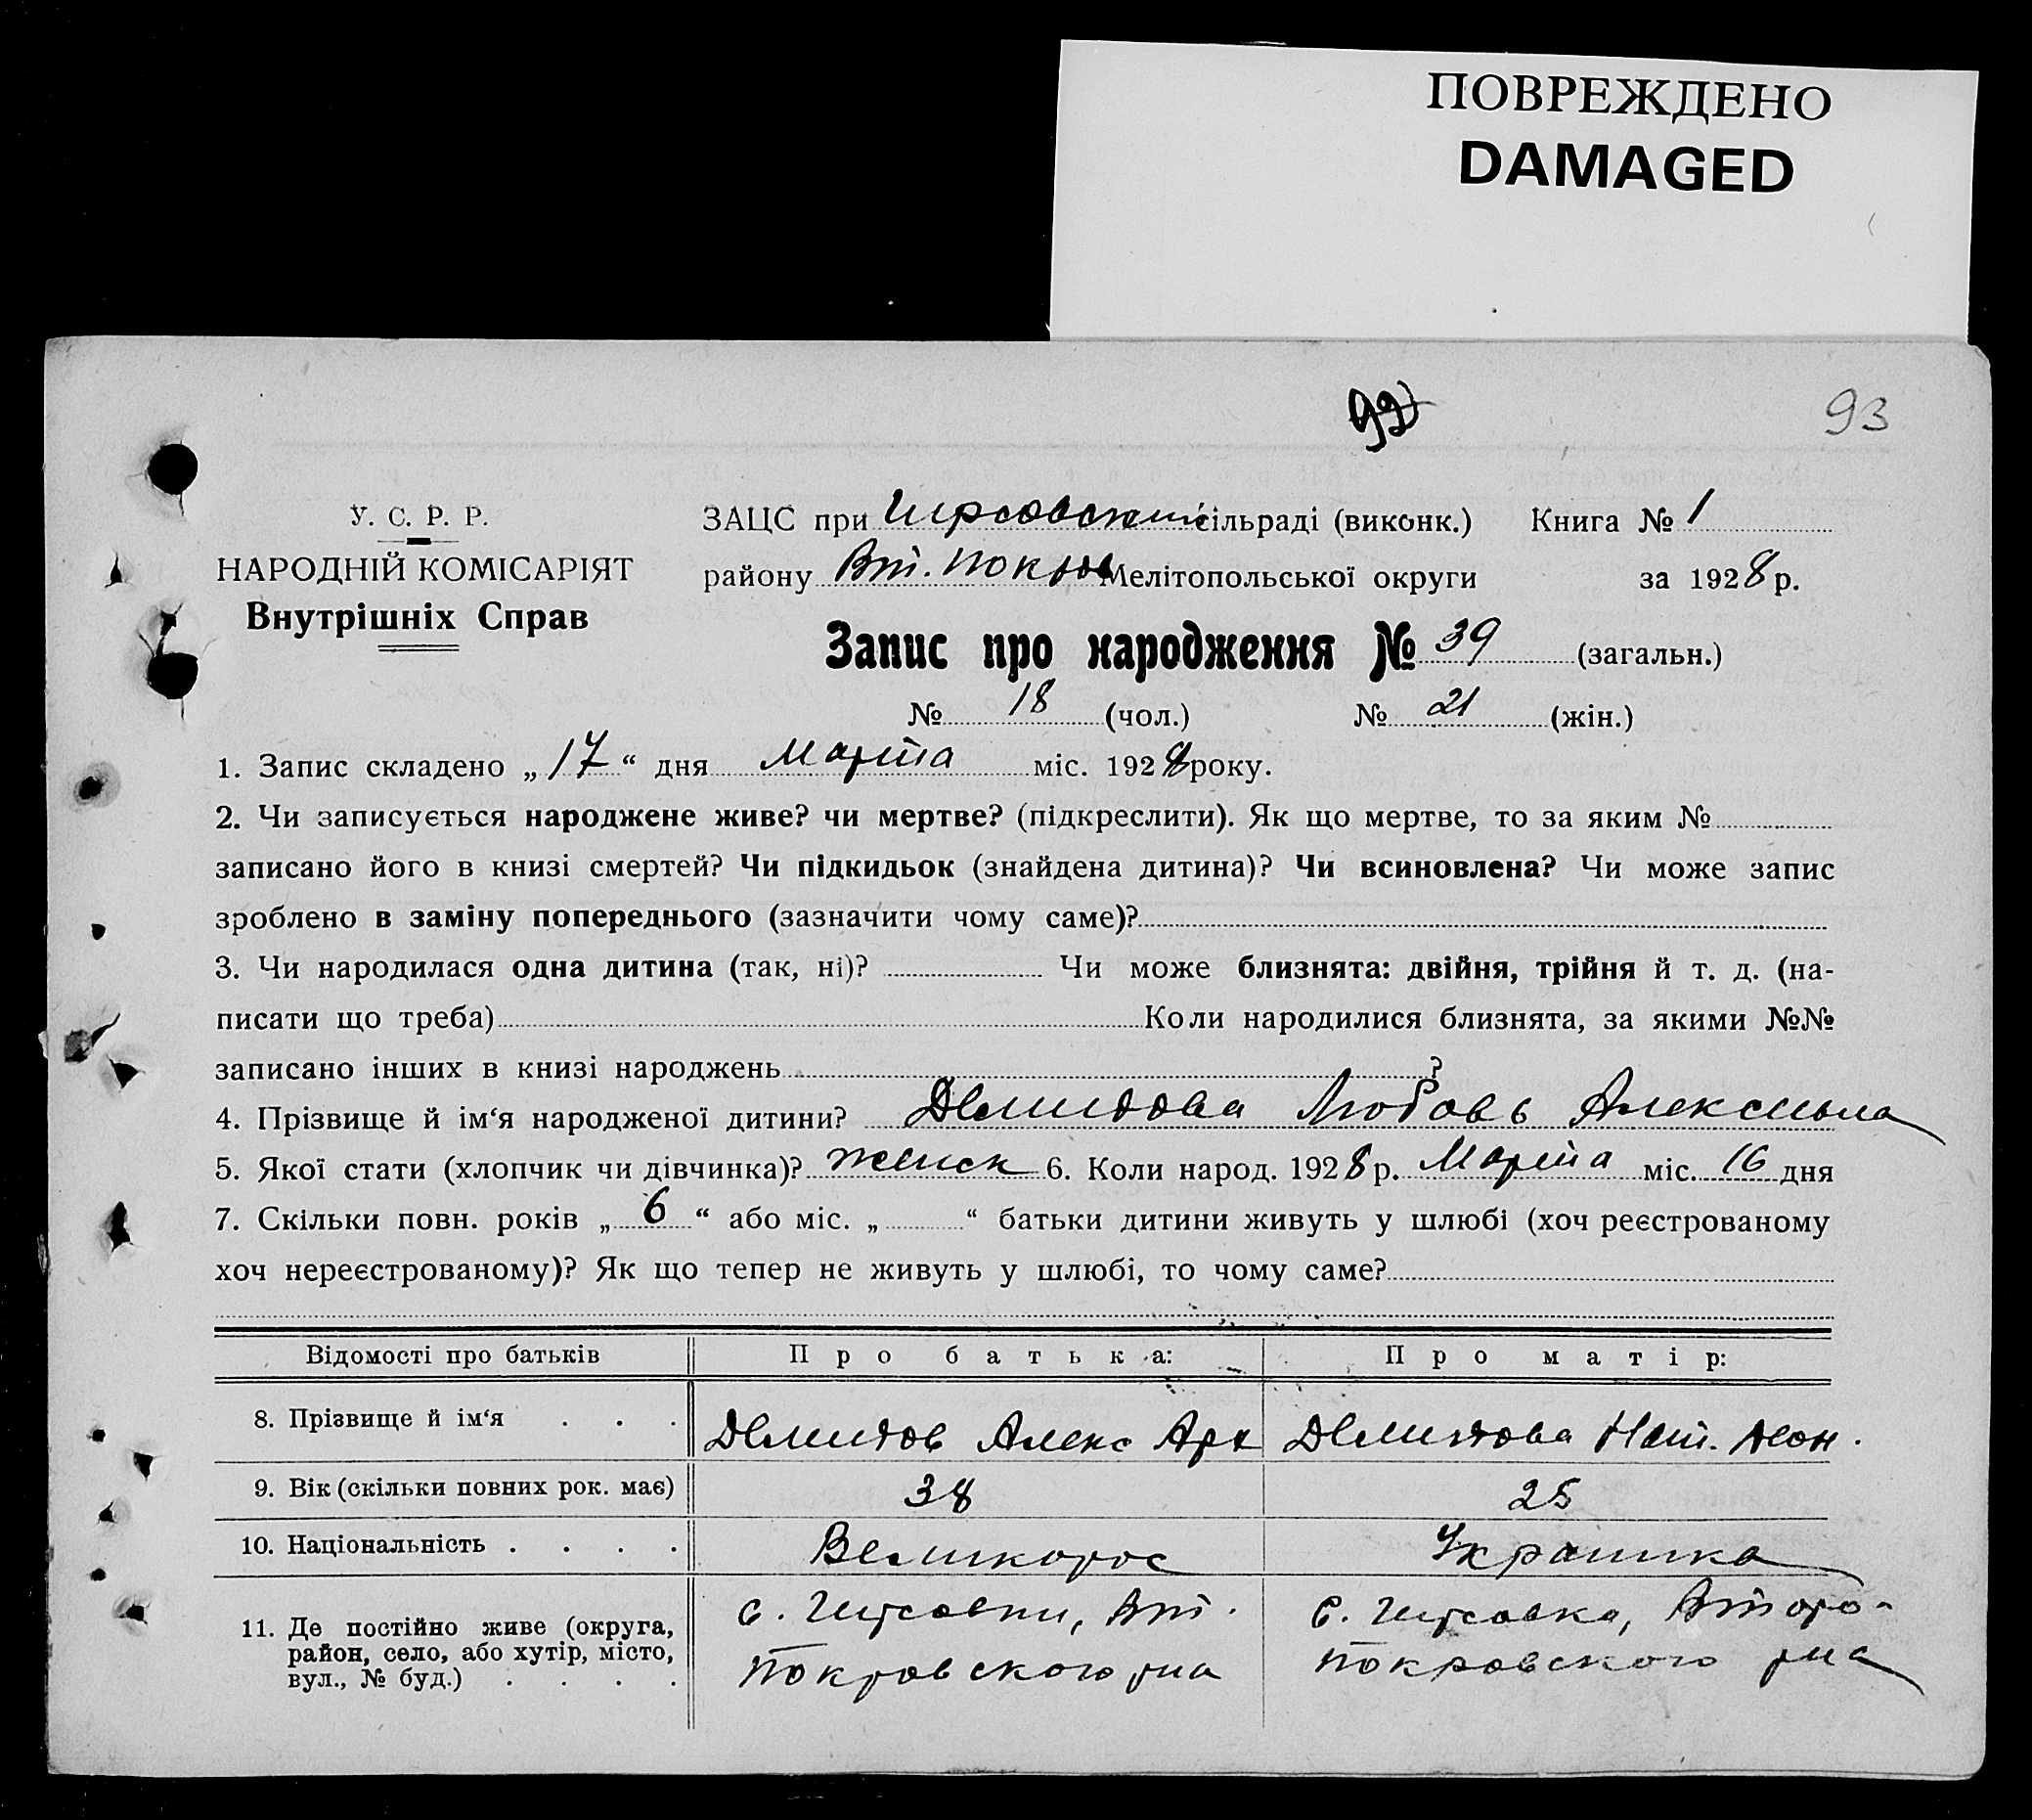 ПОВРЕЖДЕНО
DAMAGED
92
93
У. С. Р. Р.
НАРОДНІЙ КОМІСАРІЯТ
Внутрішніх Справ
ЗАЦС при сільраді (виконк.) Книга № 1
району Вт. Покров Мелітопольської округи за 1928 р.
Запис про народження № 39 (загальн.)
№ 18 (чол.) № 21 (жін.)
1. Запис складено „17“ дня Марта міс. 1928 року.
2. Чи записується народжене живе? чи мертве? (підкреслити). Як що мертве, то за яким №
записано його в книзі смертей? Чи підкидьок (знайдена дитина)? Чи всиновлена? Чи може запис
зроблено в заміну попереднього (зазначити чому саме)?
3. Чи народилася одна дитина (так, ні)? Чи може близнята: двійня, трійня й т. д. (на-
писати що треба) Коли народилися близнята, за якими №№
записано інших в книзі народжень ?
4. Прізвище й ім‘я народженої дитини? Демидова Любовь
5. Якої стати (хлопчик чи дівчинка)? женск 6. Коли народ. 1928 р. Марта міс. 16 дня
7. Скільки повн. років „6“ або міс. „ “ батьки дитини живуть у шлюбі (хоч реєстрованому
хоч нереєстрованому)? Як що тепер не живуть у шлюбі, то чому саме?
Відомості про батьків Про батька: Про матір:
8. Прізвище й ім‘я . . . Демидов Алекс Арх Демидова Нат. Леон.
9. Вік (скільки повних рок. має) 38 25
10. Національність . . . . Великорос Украинка
11. Де постійно живе (округа, район, село, або хутір, місто, вул., № буд.) . . . .
с. Вт.
Покровского рна
с. Второ-
покровского рна